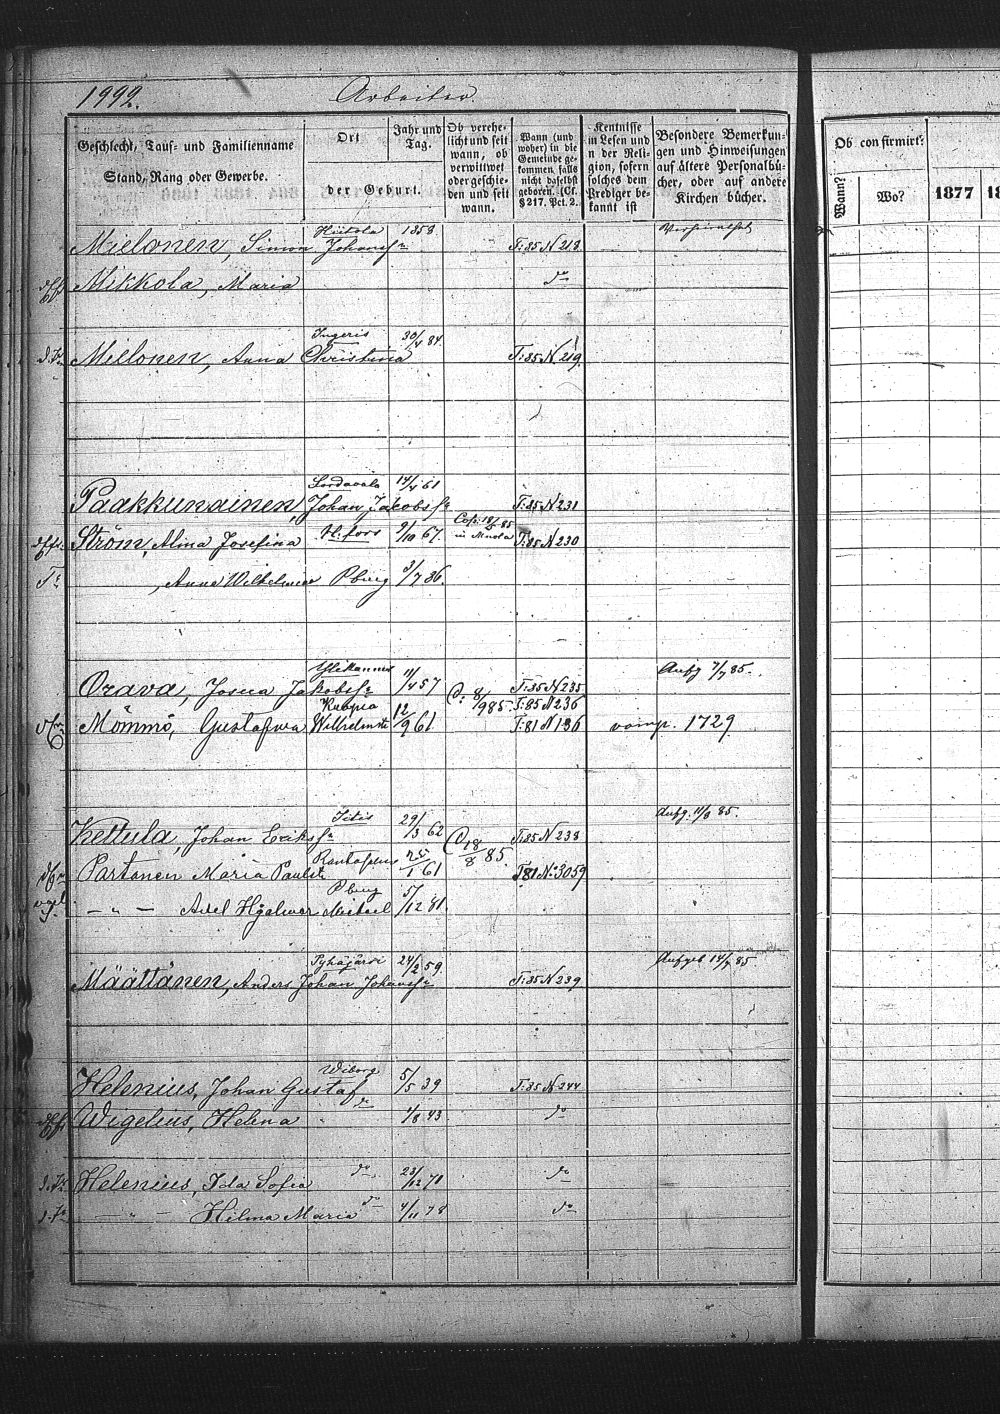 1992.
Arbeiter.
Geschlecht, Tauf- und Familienname
Stand, Rang oder Gewerbe.
Ort
Jahr und Tag.
der Geburt.
Ob verehelicht und seit wann, ob verwittwet oder geschieden und seit wann.
Wann (und woher) in die Gemeinde gekommen falls nicht daselbst geboren. (Cf. § 217. Pct. 2.
Kentnisse in Lesen und n der Religion, sofern solches dem Prediger bekannt ist
Besondere Bemerkungen und Hinweisungen auf ältere Personalbücher, oder auf andere Kirchen bücher.
Ob confirmirt?
Wann?
Wo?
1877
Hiitola 1858
Mielonen, Simon Johanss: T:85 N 218
Mikkola, Maria do
Ingeris 30/4 84.
Mielonen, Anna Christina T:85 N 219.
Sordavala 14/4 61
Paakkunainen, Johan Jakobss: T:85 N 231
Ström, Alma Josefina H:fors 9/10 67. T:85 N 230
Anna Wilhelmina Pburg 3/7 86.
Aufg 7/7 85.
Orava, Josua Jakobss: 11/4 57 C: 8/9 85. T:85 N 235
Kuopio T:85 N 236
Mömmö, Gustafwa Wilhelmsd: 12/9 61 T:81 N 136 1729.
Iitis 29/3 62 Aufg. 11/8 85.
Kettula, Johan Erikss: C 18/8 85. T:85 N 238
Partanen Maria Paulsd: 25/1 61 T81 N:3059
Pburg 5/12 81.
— " — Axel Hjalmar Mickael
Pyhäjärvi 24/2 59. Aufgeb 14/7 85
Määttänen, Anders Johan Johanss: T:85 N 239
Wiborg
Helenius, Johan Gustaf 5/5 39 T:85 N 244
Wigelius, Helena " 1/8 43 do
Helenius, Ida Sofia do 23/12 71 do
— " — Hilma Maria do 4/11 78 do